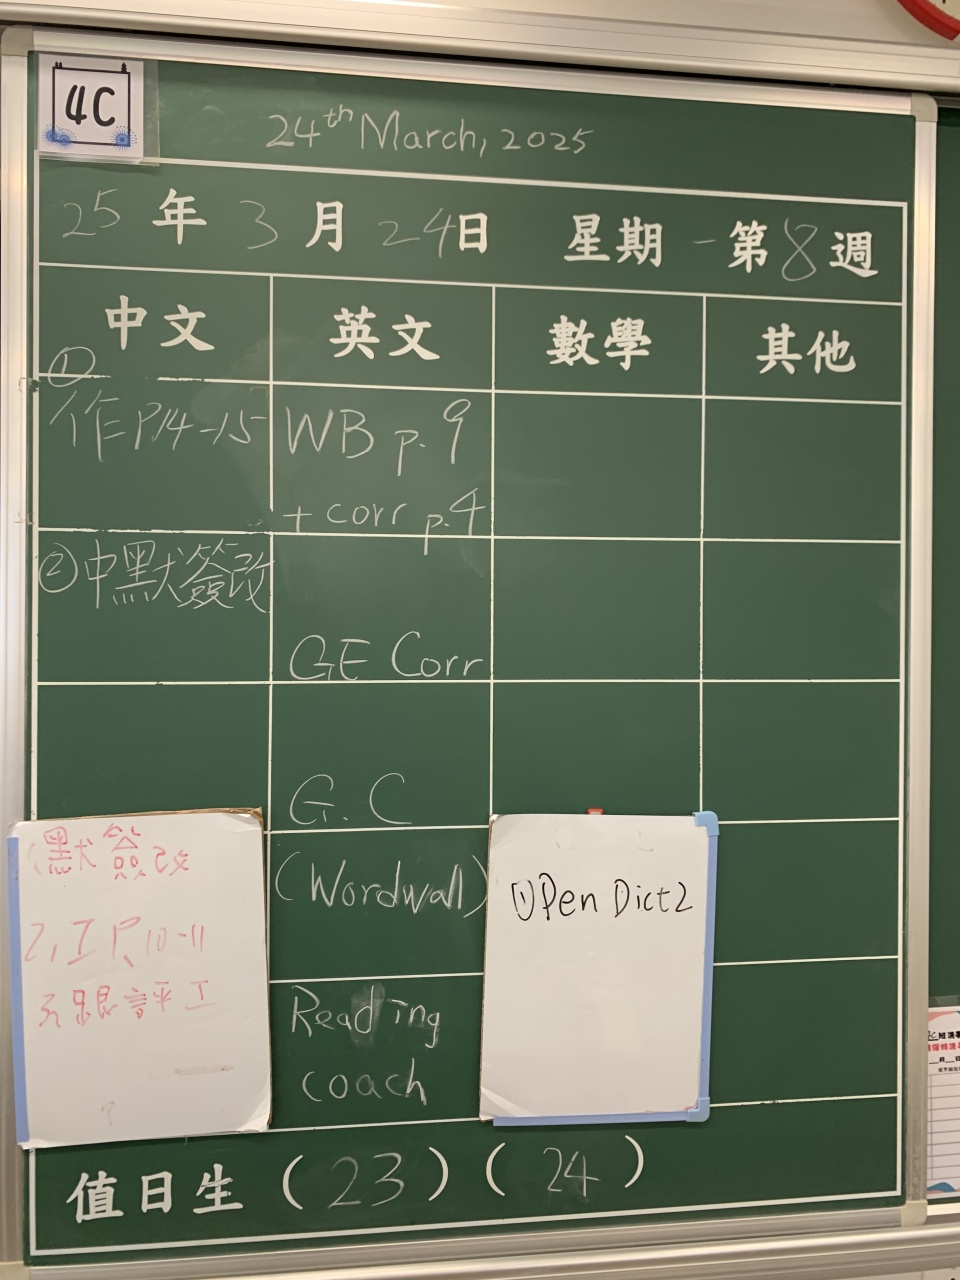 4C
24th March, 2025
25年3月24日 星期一 第8週
中文 英文 數學 其他
①
作P14-15
②中默簽改
WB p.9
+ corr p.4
GE Corr
G.C
(Wordwall)
Reading
coach
默簽改
2,工P.10-11
3跟評工
①Pen Dict2
值日生 (23) (24)